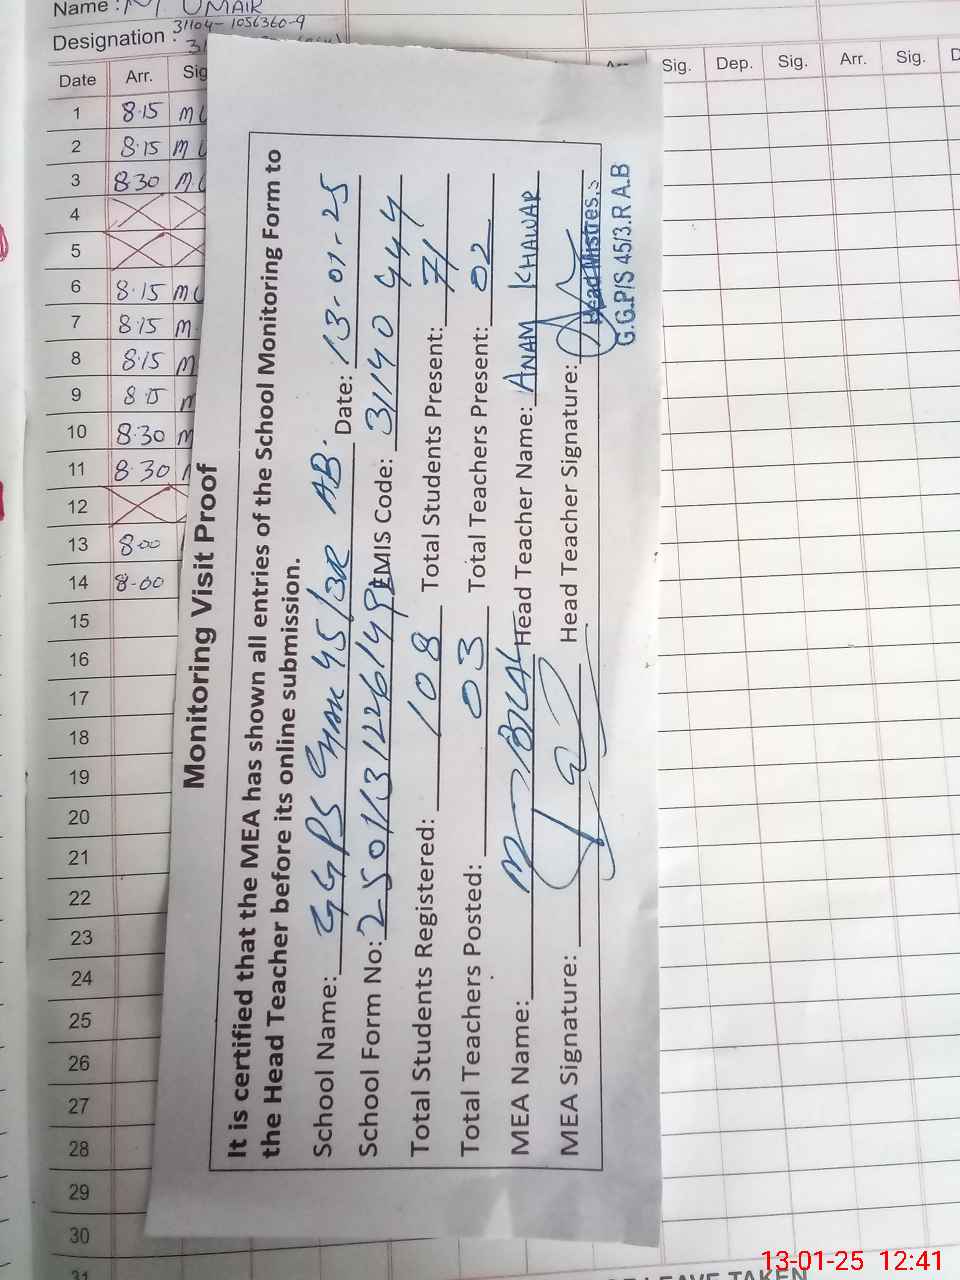 Name : M. UMAIR
31104-1056360-9
Designation :
Date Arr. Sig Sig. Dep. Sig. Arr. Sig.
1 8.15
2 8.15
3 8.30
4
5
6 8.15
7 8.15
8 8.15
9 8.15
10 8.30
11 8.30
12
13 8.00
14 8-00
15
16
17
18
19
20
21
22
23
24
25
26
27
28
29
30
31
Monitoring Visit Proof
It is certified that the MEA has shown all entries of the School Monitoring Form to
the Head Teacher before its online submission.
School Name: GGPS Chak 45/3R AB. Date: 13-01-25
School Form No: EMIS Code: 31140444
Total Students Registered: 108 Total Students Present: 71
Total Teachers Posted: 03 Total Teachers Present: 02
MEA Name: M BILAL Head Teacher Name: ANAM KHAWAR
MEA Signature: Head Teacher Signature:
Head Mistres,s
G.G.P/S 45/3.R A.B
LEAVE TAKEN
13-01-25 12:41